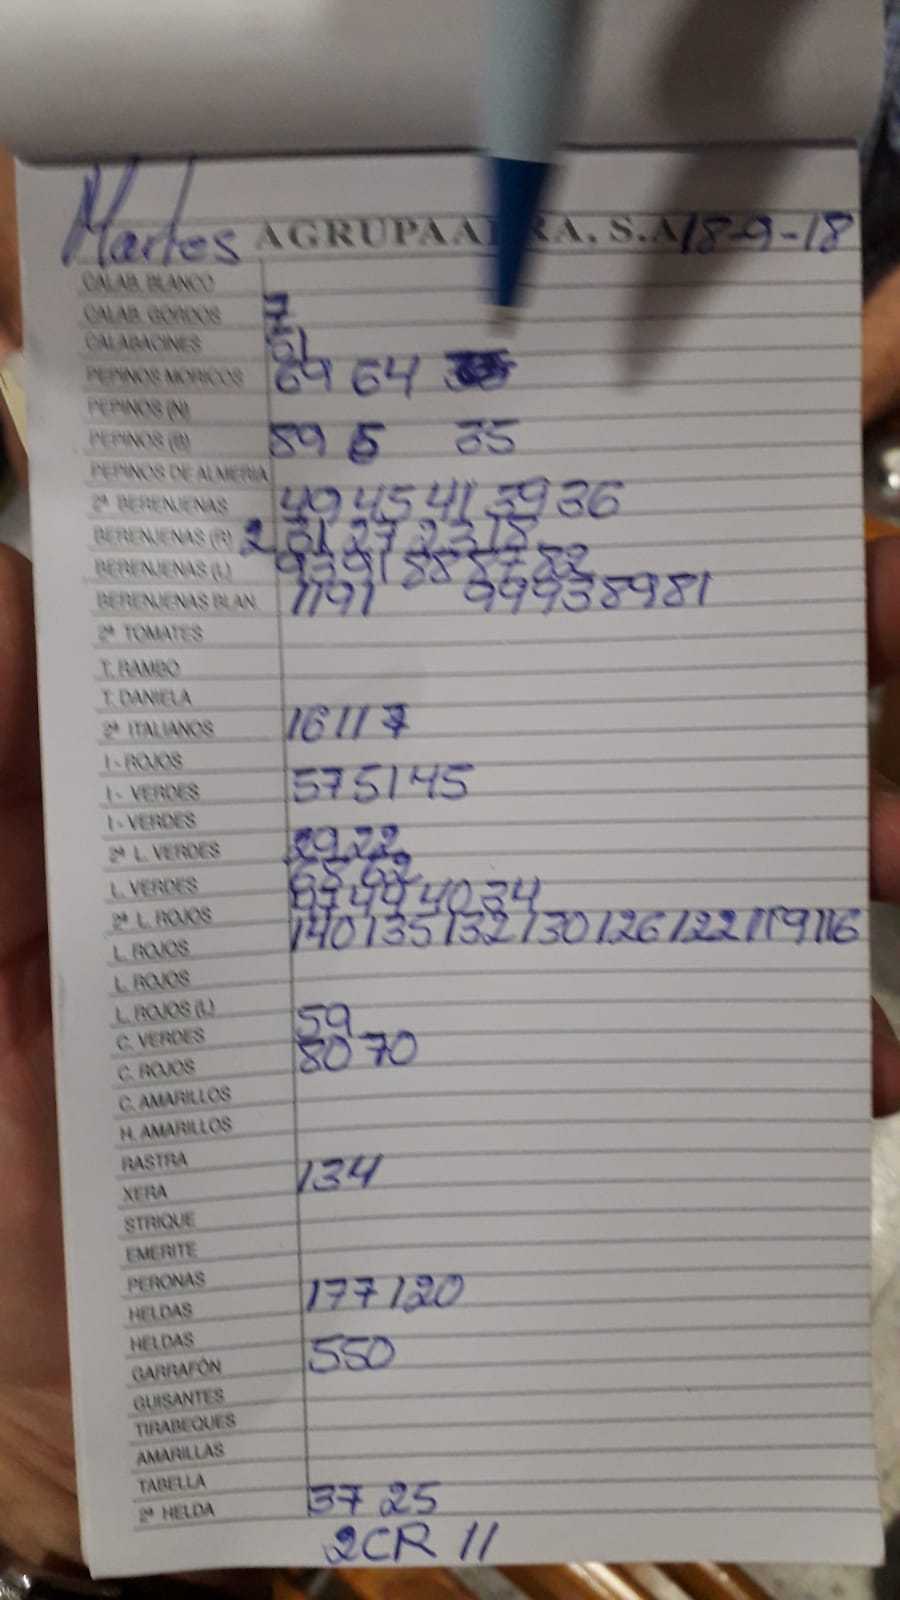 Martes AGRUPAA RA, S.A 18-9-18
CALAB. BLANCO
CALAB. GORDOS 7
CALABACINES 51
PEPINOS MORICOS 69 64
PEPINOS (N)
PEPINOS (B) 59 5 35
PEPINOS DE ALMERIA
2ª BERENJENAS 49 45 41 39 36
BERENJENAS (R) 2 31 27 23 18
BERENJENAS (L) 93 91 88 87 82
BERENJENAS BLAN. 11 91 99 93 89 81
2ª TOMATES
T. RAMBO
T. DANIELA
2ª ITALIANOS 16 11 7
I - ROJOS
I - VERDES 57 51 45
I - VERDES
2ª L. VERDES 29 22
L. VERDES 65 62
2ª L. ROJOS 49 40 34
L. ROJOS 140 135 132 130 126 122 119 116
L. ROJOS
L. ROJOS (L)
C. VERDES 59
C. ROJOS 80 70
C. AMARILLOS
H. AMARILLOS
RASTRA
XERA 134
STRIQUE
EMERITE
PERONAS
HELDAS 177 120
HELDAS
GARRAFÓN 550
GUISANTES
TIRABEQUES
AMARILLAS
TABELLA
2ª HELDA 37 25
2CR 11